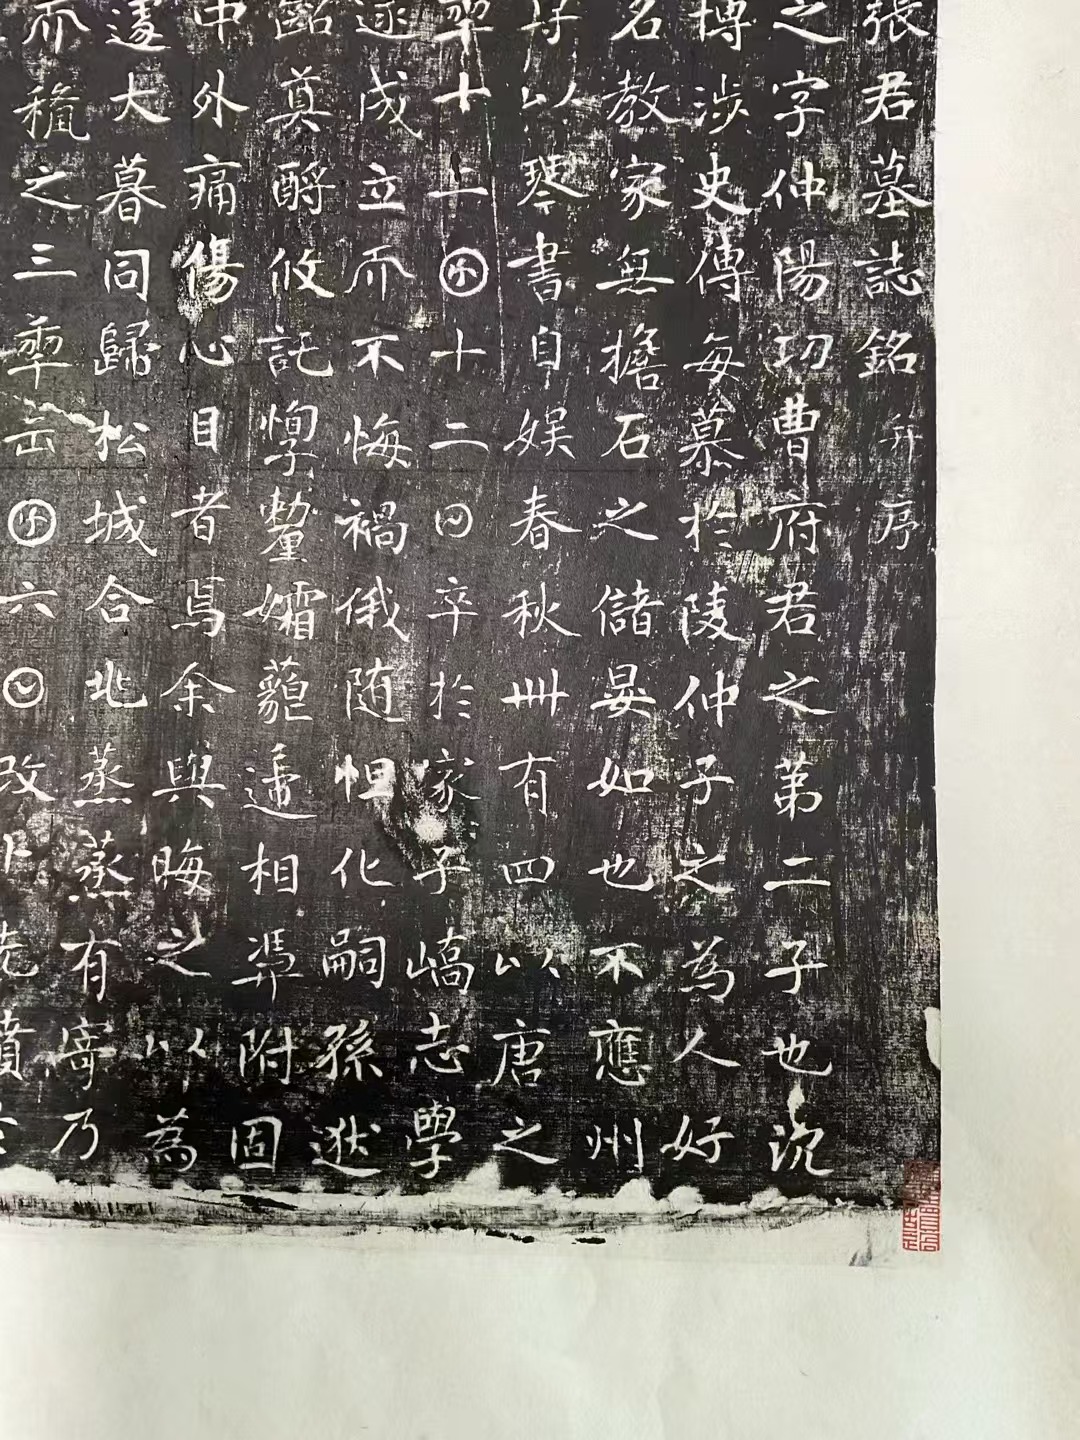 張君墓誌銘并序
之字仲陽功曹府君之第二子也沉
博涉史傳每慕於陵仲子之為人好
名教家無擔石之儲晏如也不應州
尋以琴書自娛春秋卌有四以唐之
十二𠥱十二日卒於家子嶠志學
遂成立而不悔禍俄随怛化嗣孫逖
奠酹攸託惸嫠孀藐遞相憑附固
中外痛傷心目者焉余與晦之以為
遽大暮同歸松城合兆蒸蒸有寄乃
而穐之三𠡦五𠥱六𡆠改卜先墳